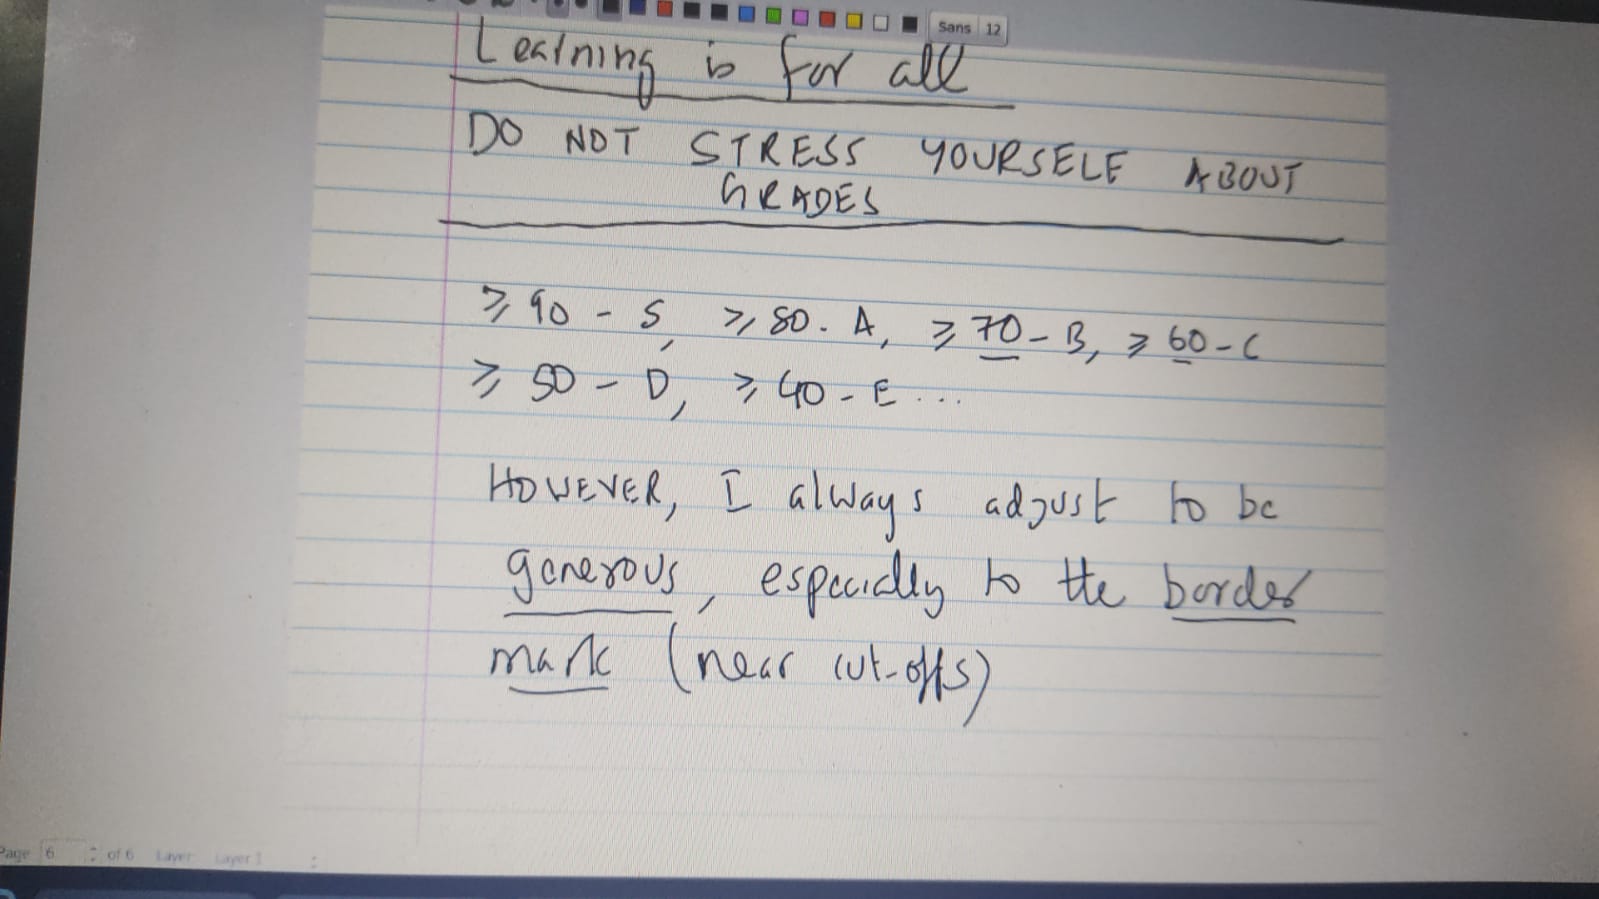 Sans 12
Learning is for all
DO NOT STRESS YOURSELF ABOUT
GRADES
⩾ 90 - S, ⩾ 80 - A, ⩾ 70 - B, ⩾ 60 - C
⩾ 50 - D, ⩾ 40 - E ...
HOWEVER, I always adjust to be
generous, especially to the border
mark (near cut-offs)
Page 6 of 6 Layer Layer 1